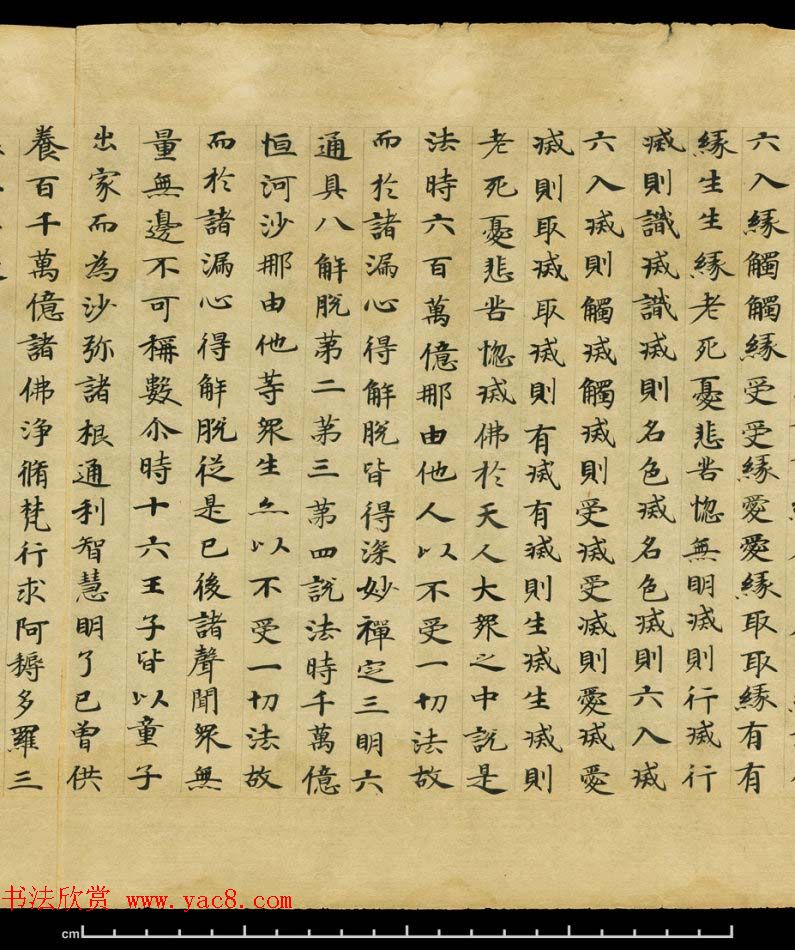 六入緣觸觸緣受受緣愛愛緣取取緣有有
緣生生緣老死憂悲苦惚無明滅則行滅行
滅則識滅識滅則名色滅名色滅則六入滅
六入滅則觸滅觸滅則受滅受滅則愛滅愛
滅則取滅取滅則有滅有滅則生滅生滅則
老死憂悲苦惚滅佛於天人大眾之中說是
法時六百萬億那由他人以不受一切法故
而於諸漏心得解脫皆得深妙禪定三明六
通具八解脫第二第三第四說法時千萬億
恒河沙那由他等眾生亦以不受一切法故
而於諸漏心得解脫從是已後諸聲聞眾無
量無邊不可稱數尒時十六王子皆以童子
出家而為沙弥諸根通利智慧明了已曾供
養百千萬億諸佛淨脩梵行求阿耨多羅三
书法欣赏 www.yac8.com
cm